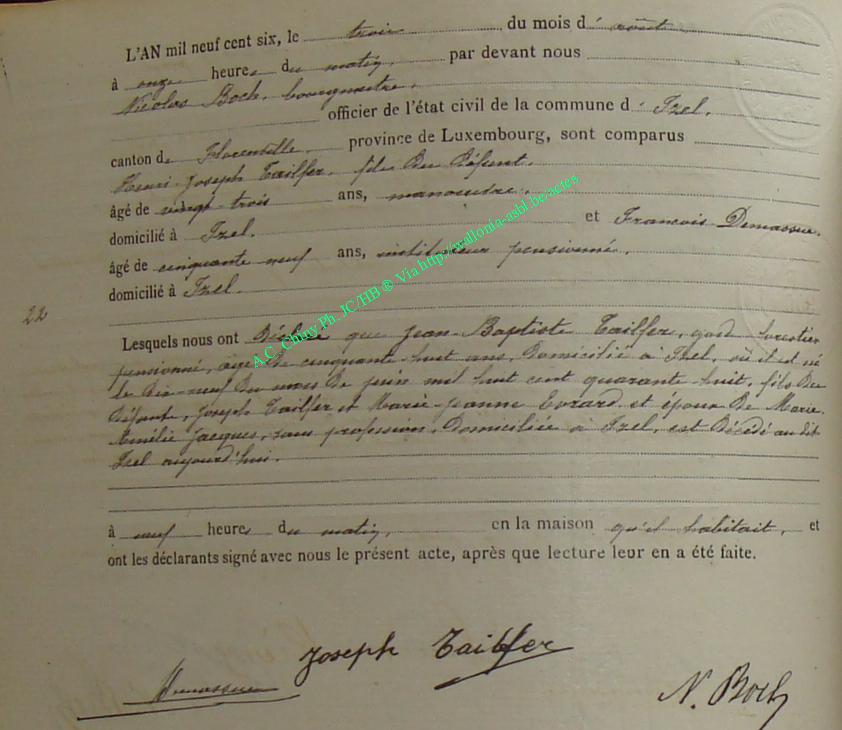 L'AN mil neuf cent six, le trois du mois d'août
à onze heures du matin, par devant nous
Nicolas Boch, bourgmestre,
officier de l'état civil de la commune d'Izel,
canton de Florenville, province de Luxembourg, sont comparus
Henri Joseph Tailfer, fils du défunt,
âgé de vingt trois ans, manoeuvre,
domicilié à Izel. et François Demasure,
âgé de cinquante neuf ans, instituteur pensionné,
domicilié à Izel.
22
Lesquels nous ont déclaré que Jean-Baptiste Tailfer, garde forestier
pensionné, âgé de cinquante-huit ans, domicilié à Izel, où il est né
le dix-neuf du mois de juin mil huit cent quarante huit, fils de
défunt, Joseph Tailfer et Marie-Jeanne Evrard et époux de Marie
Emélie Jacques, sans profession, domiciliée à Izel, est décédé au dit
Izel aujourd'hui.
à neuf heures du matin, en la maison qu'il habitait, et
ont les déclarants signé avec nous le présent acte, après que lecture leur en a été faite.
Joseph Tailfer
N. Boch
A.C. Chiny Ph. JC/HB ® Via http://wallonia-asbl.be/actes